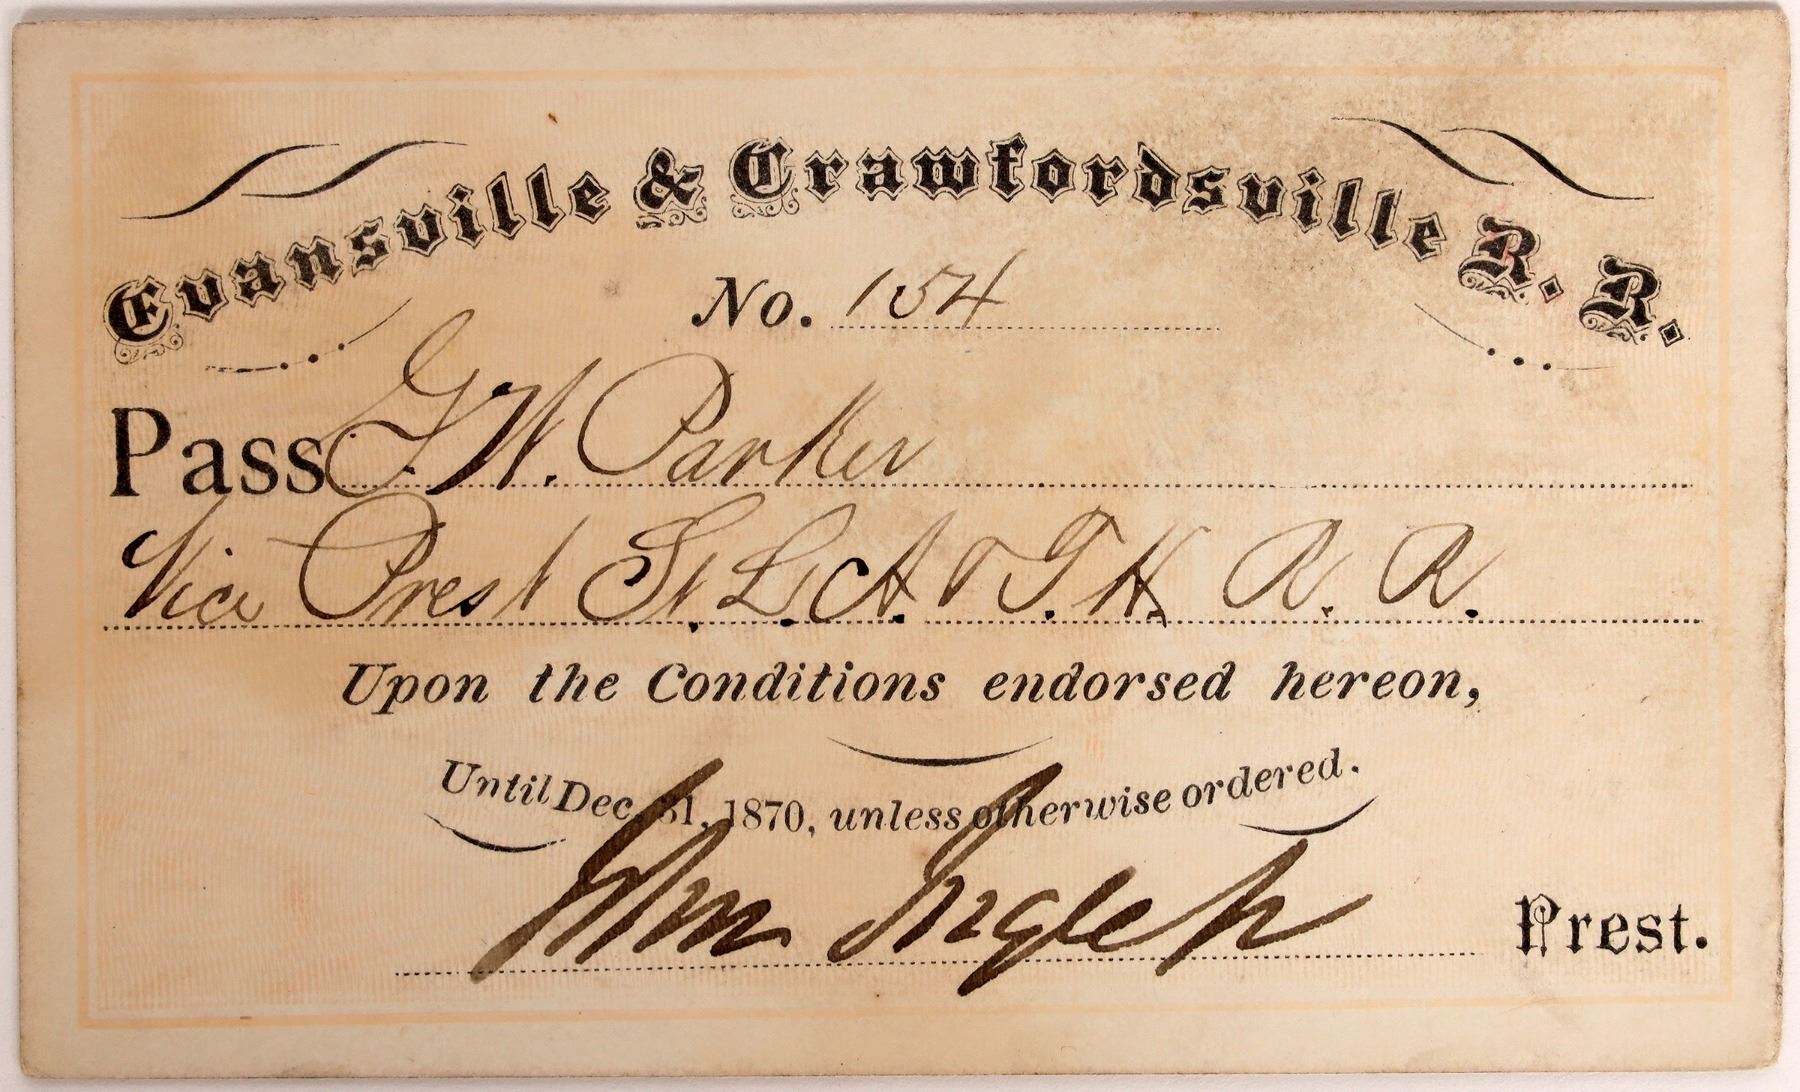 Evansville & Crawfordsville R. R.
No. 154
Pass G. W. Parker
Vice Prest St. L. A. & T. H. R. R.
Upon the Conditions endorsed hereon,
Until Dec. 31, 1870, unless otherwise ordered.
Wm Ingleh Prest.